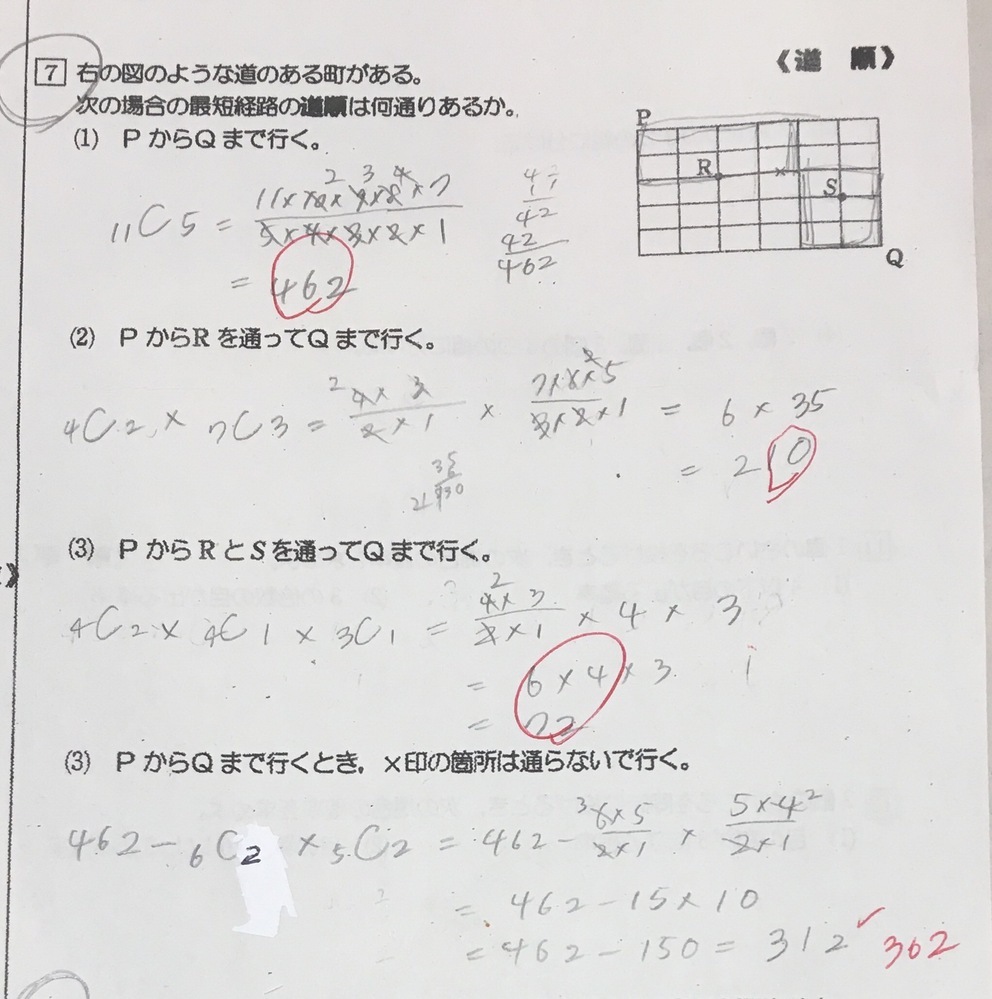 《道 順》
7 右の図のような道のある町がある。
次の場合の最短経路の道順は何通りあるか。
P
R
×
S
Q
(1) PからQまで行く。
11C5 = 11×10×9×8×7 / 5×4×3×2×1
2 3 4
= 462
42
42
462
(2) PからRを通ってQまで行く。
4C2 × 7C3 = 4×3 / 2×1 × 7×6×5 / 3×2×1 = 6 × 35
2 2
= 210
35
6
(3) PからRとSを通ってQまで行く。
4C2 × 4C1 × 3C1 = 4×3 / 2×1 × 4 × 3
2
= 6×4×3
= 72
(3) PからQまで行くとき，×印の箇所は通らないで行く。
462 − 6C2 × 5C2 = 462 − 6×5 / 2×1 × 5×4 / 2×1
3 2
= 462 − 15×10
= 462 − 150 = 312 ✓ 362